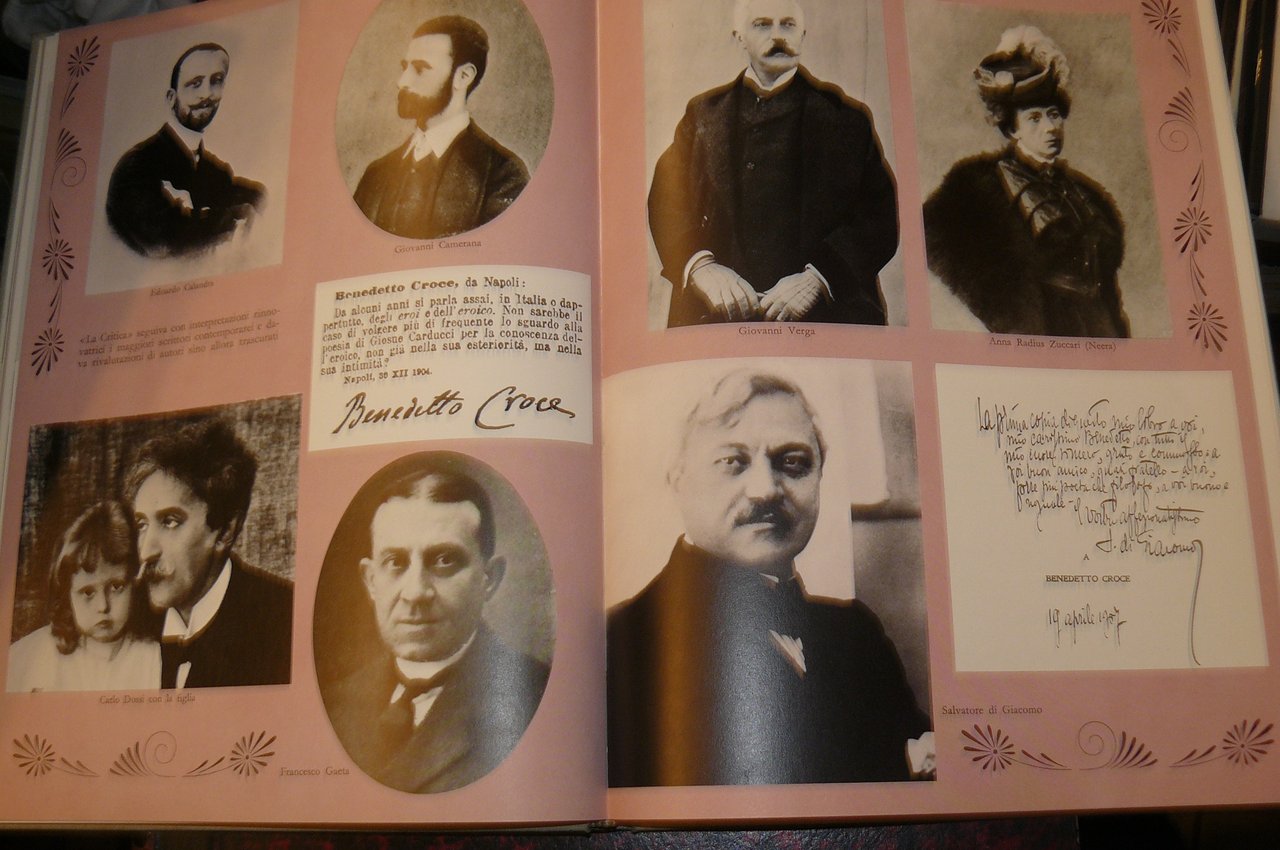 Edoardo Calandra
Giovanni Camerana
«La Critica» seguiva con interpretazioni rinno-
vatrici i maggiori scrittori contemporanei e da-
va rivalutazioni di autori sino allora trascurati
Benedetto Croce, da Napoli:
Da alcuni anni si parla assai, in Italia e dap-
pertutto, degli eroi e dell'eroico. Non sarebbe il
caso di volgere più di frequente lo sguardo alla
poesia di Giosue Carducci per la conoscenza del-
l'eroico, non già nella sua esteriorità, ma nella
sua intimità?
Napoli, 30 XII 1904.
Benedetto Croce
Carlo Dossi con la figlia
Francesco Gaeta
Giovanni Verga
Anna Radius Zuccari (Neera)
La prima copia di questo mio libro a voi,
mio carissimo Benedetto, con tutto il
mio cuore sincero, grato e commosso: a
voi buon amico, quasi fratello – a voi,
forse più poeta che filosofo, a voi buono e
originale – il vostro affezionatissimo
S. di Giacomo
A
BENEDETTO CROCE
19 aprile 1907
Salvatore di Giacomo